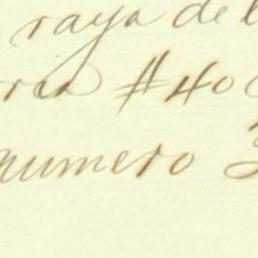 raya de l
ria #40
numero